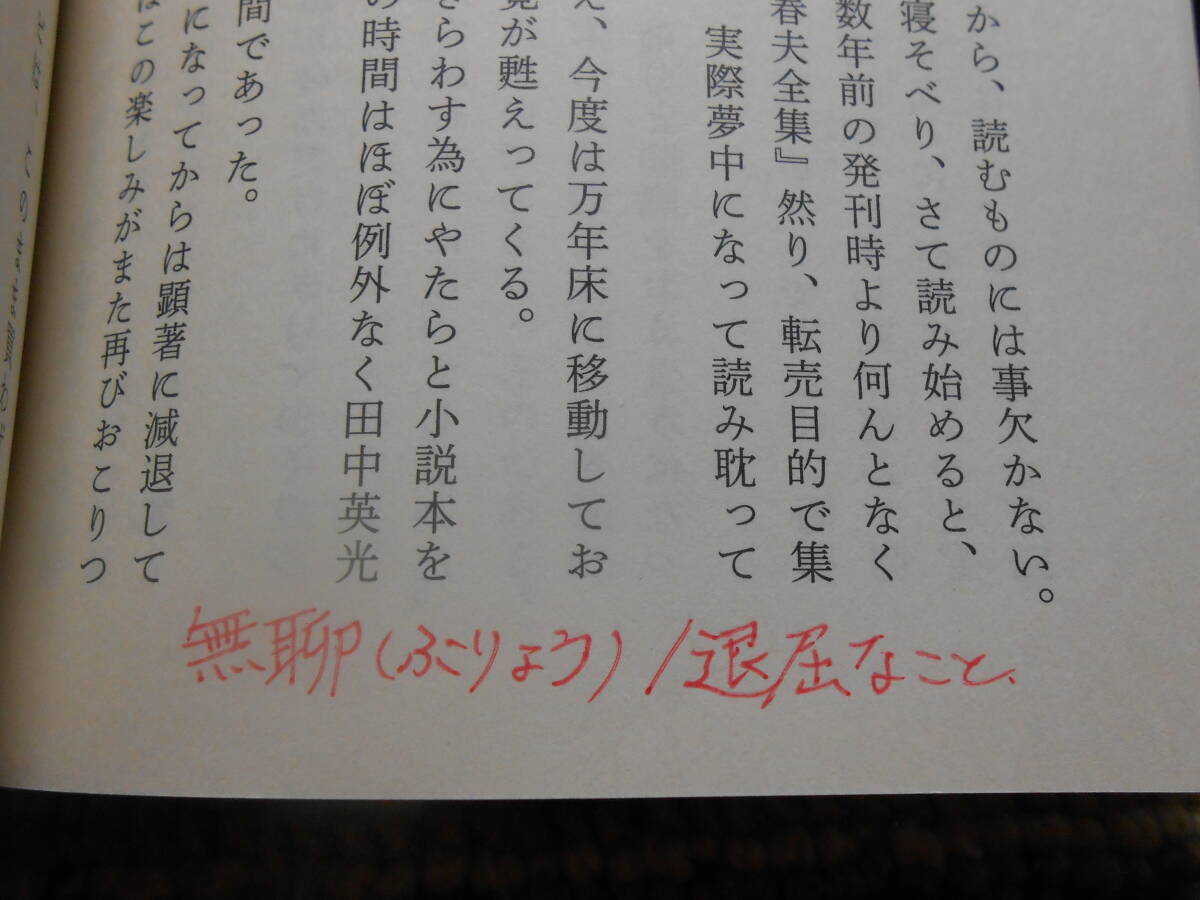 から、読むものには事欠かない。
寝そべり、さて読み始めると、
数年前の発刊時より何んとなく
春夫全集』然り、転売目的で集
実際夢中になって読み耽って
え、今度は万年床に移動してお
覚が甦えってくる。
きらわす為にやたらと小説本を
の時間はほぼ例外なく田中英光
間であった。
になってからは顕著に減退して
はこの楽しみがまた再びおこりつ
無聊(ぶりょう)/退屈なこと、